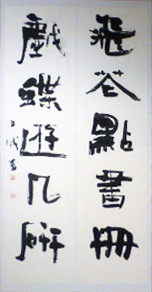 飛花點書冊
戲蝶遊几研